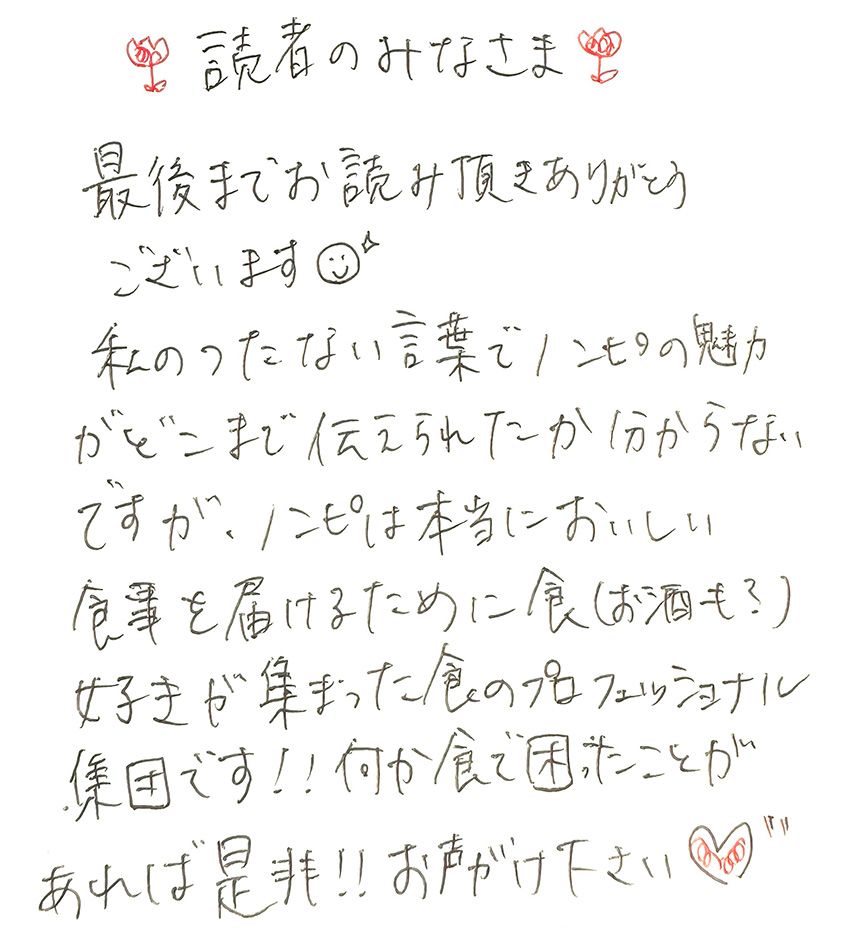 読者のみなさま
最後までお読み頂きありがとう
ございます
私のつたない言葉でノンピの魅力
がどこまで伝えられたか分からない
ですが、ノンピは本当においしい
食事を届けるために食(お酒も?)
好きが集まった食のプロフェッショナル
集団です!!何か食で困ったことが
あれば是非!!お声がけ下さい